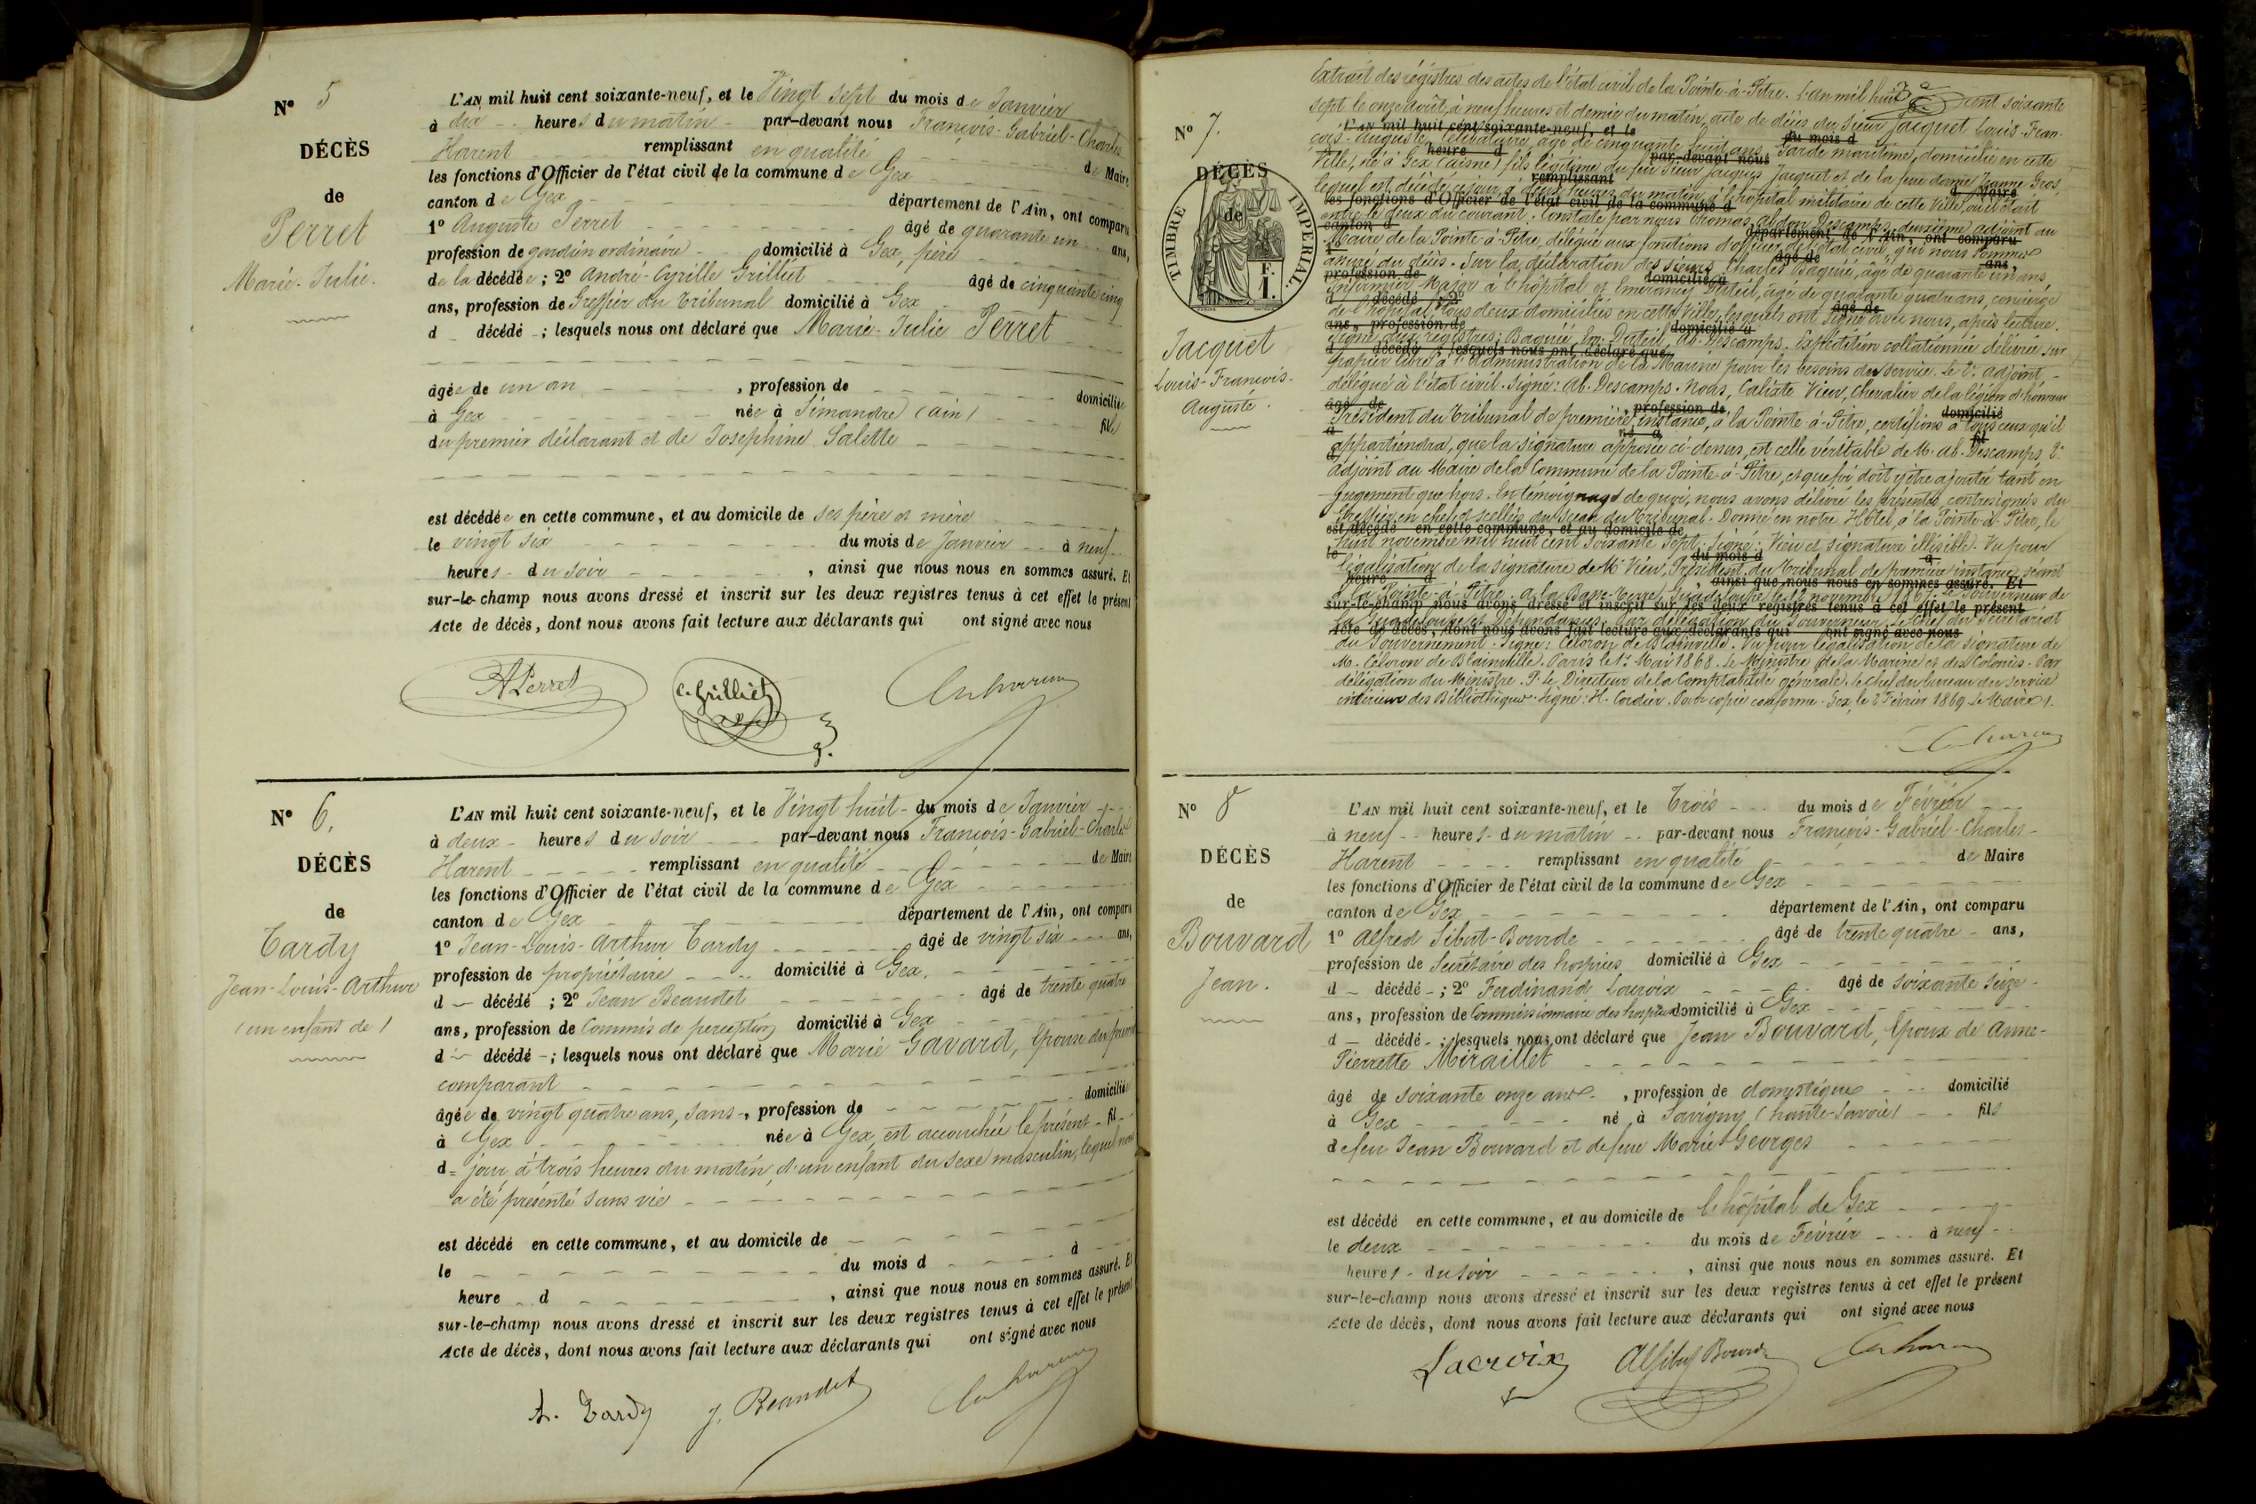 N° 5
DÉCÈS
de
Perret
Marie-Julie.
L'AN mil huit cent soixante-neuf, et le Vingt sept du mois de Janvier
à dix heures du matin par-devant nous François-Gabriel-Charles
Harent remplissant en qualité de Maire
les fonctions d'Officier de l'état civil de la commune de Gex
canton de Gex département de l'Ain, ont comparu
1° Auguste Perret âgé de quarante un ans,
profession de ordinaire domicilié à Gex, père
de la décédée; 2° André-Cyrille Grilliet âgé de cinquante cinq
ans, profession de Greffier du tribunal domicilié à Gex
d décédé; lesquels nous ont déclaré que Marie-Julie Perret
âgée de un an, profession de domiciliée
à Gex née à Simandre (Ain) fille
du premier déclarant et de Josephine Salette
est décédée en cette commune, et au domicile de ses père et mère
le vingt six du mois de Janvier à neuf
heures du soir, ainsi que nous nous en sommes assuré. Et
sur-le-champ nous avons dressé et inscrit sur les deux registres tenus à cet effet le présent
Acte de décès, dont nous avons fait lecture aux déclarants qui ont signé avec nous
A Perret C. Grilliet Ch harent
N° 6.
DÉCÈS
de
Tardy
Jean-Louis-Arthur
(un enfant de)
L'AN mil huit cent soixante-neuf, et le Vingt huit du mois de Janvier
à deux heures du soir par-devant nous François-Gabriel-Charles
Harent remplissant en qualité de Maire
les fonctions d'Officier de l'état civil de la commune de Gex
canton de Gex département de l'Ain, ont comparu
1° Jean-Louis-Arthur Tardy âgé de vingt six ans,
profession de propriétaire domicilié à Gex.
d décédé; 2° Jean Beaudet âgé de trente quatre
ans, profession de Commis de perception domicilié à Gex
d décédé; lesquels nous ont déclaré que Marie Gavard, Epouse du premier
comparant
âgée de vingt quatre ans, sans, profession de domiciliée
à Gex née à Gex, est accouchée le présent fil
d jour, à trois heures du matin, d'un enfant du sexe masculin, lequel nous
a été présenté sans vie
est décédé en cette commune, et au domicile de
le du mois d à
heure d, ainsi que nous nous en sommes assuré. Et
sur-le-champ nous avons dressé et inscrit sur les deux registres tenus à cet effet le présent
Acte de décès, dont nous avons fait lecture aux déclarants qui ont signé avec nous
A. Tardy J. Beaudet Ch harent
N° 7.
DÉCÈS
de
TIMBRE IMPÉRIAL
F.
1.
Jacquet
Louis-François-
Auguste.
Extrait des régistres des actes de l'état civil de la Pointe-à-Pitre. L'an mil huit cent soixante
sept le onze août, à neuf heures et demie du matin, acte de décès du Sieur Jacquet Louis-Fran-
L'AN mil huit cent soixante-neuf, et le du mois d
çois-Auguste, célibataire, âgé de cinquante huit ans, Garde maritime, domicilié en cette
heure d par-devant nous
Ville, né à Gex (aisne) fils légitime du feu Sieur Jacques Jacquet et de la feue dame Jeanne Gros,
remplissant d Maire
lequel est décédé ce jour, à deux heures du matin à l'hôpital militaire de cette Ville, où il était
les fonctions d'Officier de l'état civil de la commune d
entré le deux du courant. Constaté par nous Thomas Descamps, deuxième adjoint au
canton d département de l'Ain, ont comparu
Maire de la Pointe-à-Pitre, délégué aux fonctions d'officier de l'état civil, qui nous sommes
âgé de ans,
assuré du décès. Sur la déclaration des sieurs Charles Baquié, âgé de quarante un ans,
profession de domicilié à
infirmier Major à l'hôpital et Emerance Duteil, âgé de quarante quatre ans, concierge
d décédé; 2° âgé de
de l'hôpital, tous deux domiciliés en cette Ville, lesquels ont signé avec nous, après lecture.
ans, profession de domicilié à
Signé aux registres: Baquié, Em. Duteil, Ab. Descamps. Expédition collationnée délivrée sur
d décédé; lesquels nous ont déclaré que
papier libre à l'administration de la Marine pour les besoins du service. Le 2e adjoint
délégué à l'état civil. Signé: Ab. Descamps. Nous, Calixte View, Chevalier de la légion d'honneur
âgé de, profession de domicilié
Président du Tribunal de première instance, à la Pointe-à-Pitre, certifions à tous ceux qu'il
à né à fil
appartiendra, que la signature apposée ci-dessus, est celle véritable de M. Ab. Descamps 2e
d
adjoint au Maire de la Commune de la Pointe-à-Pitre, et que foi doit y être ajoutée tant en
jugement que hors. En témoignage de quoi, nous avons délivré les présentes contresignées du
Greffier en chef et scellées du sceau du Tribunal. Donné en notre Hôtel, à la Pointe-à-Pitre, le
est décédé en cette commune, et au domicile de
huit novembre mil huit cent soixante sept. Signé: View et signature illisible. Vu pour
le du mois d à
légalisation de la signature de Mr View, Président du Tribunal de première instance séant
heure d, ainsi que nous nous en sommes assuré. Et
à la Pointe-à-Pitre, à la Basse-Terre, Guadeloupe, le 12 novembre 1867. Le Gouverneur de
sur-le-champ nous avons dressé et inscrit sur les deux registres tenus à cet effet le présent
la Guadeloupe et dépendances. Par délégation du Gouverneur: Le Chef du Secrétariat
Acte de décès, dont nous avons fait lecture aux déclarants qui ont signé avec nous
du Gouvernement. Signé: Céloron de Blainville. Vu pour légalisation de la signature de
M. Céloron de Blainville. Paris le 1er Mai 1868. Le Ministre de la Marine et des Colonies. Par
délégation du Ministre. P. Le Directeur de la Comptabilité générale. Le chef du bureau du service
intérieur des Bibliothèques. Signé: H. Cordier. Pour copie conforme. Gex, le 2 Février 1869. Le Maire.
Ch harent
N° 8
DÉCÈS
de
Bouvard
Jean.
L'AN mil huit cent soixante-neuf, et le Trois du mois de Février
à neuf heures du matin par-devant nous François-Gabriel-Charles-
Harent remplissant en qualité de Maire
les fonctions d'Officier de l'état civil de la commune de Gex
canton de Gex département de l'Ain, ont comparu
1° Alfred Sibut-Bourde âgé de trente quatre ans,
profession de Secrétaire des hospices domicilié à Gex
d décédé; 2° Ferdinand Lacroix âgé de soixante seize
ans, profession de Commissionnaire des hospices domicilié à Gex
d décédé; lesquels nous ont déclaré que Jean Bouvard, Epoux de Anne-
Pierrette Miraillet
âgé de soixante onze ans, profession de domestique domicilié
à Gex né à Savigny (haute-Savoie) fils
de feu Jean Bouvard et de feue Marie Georges
est décédé en cette commune, et au domicile de l'hôpital de Gex
le deux du mois de Février à neuf
heures du soir, ainsi que nous nous en sommes assuré. Et
sur-le-champ nous avons dressé et inscrit sur les deux registres tenus à cet effet le présent
Acte de décès, dont nous avons fait lecture aux déclarants qui ont signé avec nous
Lacroix A Sibut Bourde Ch harent